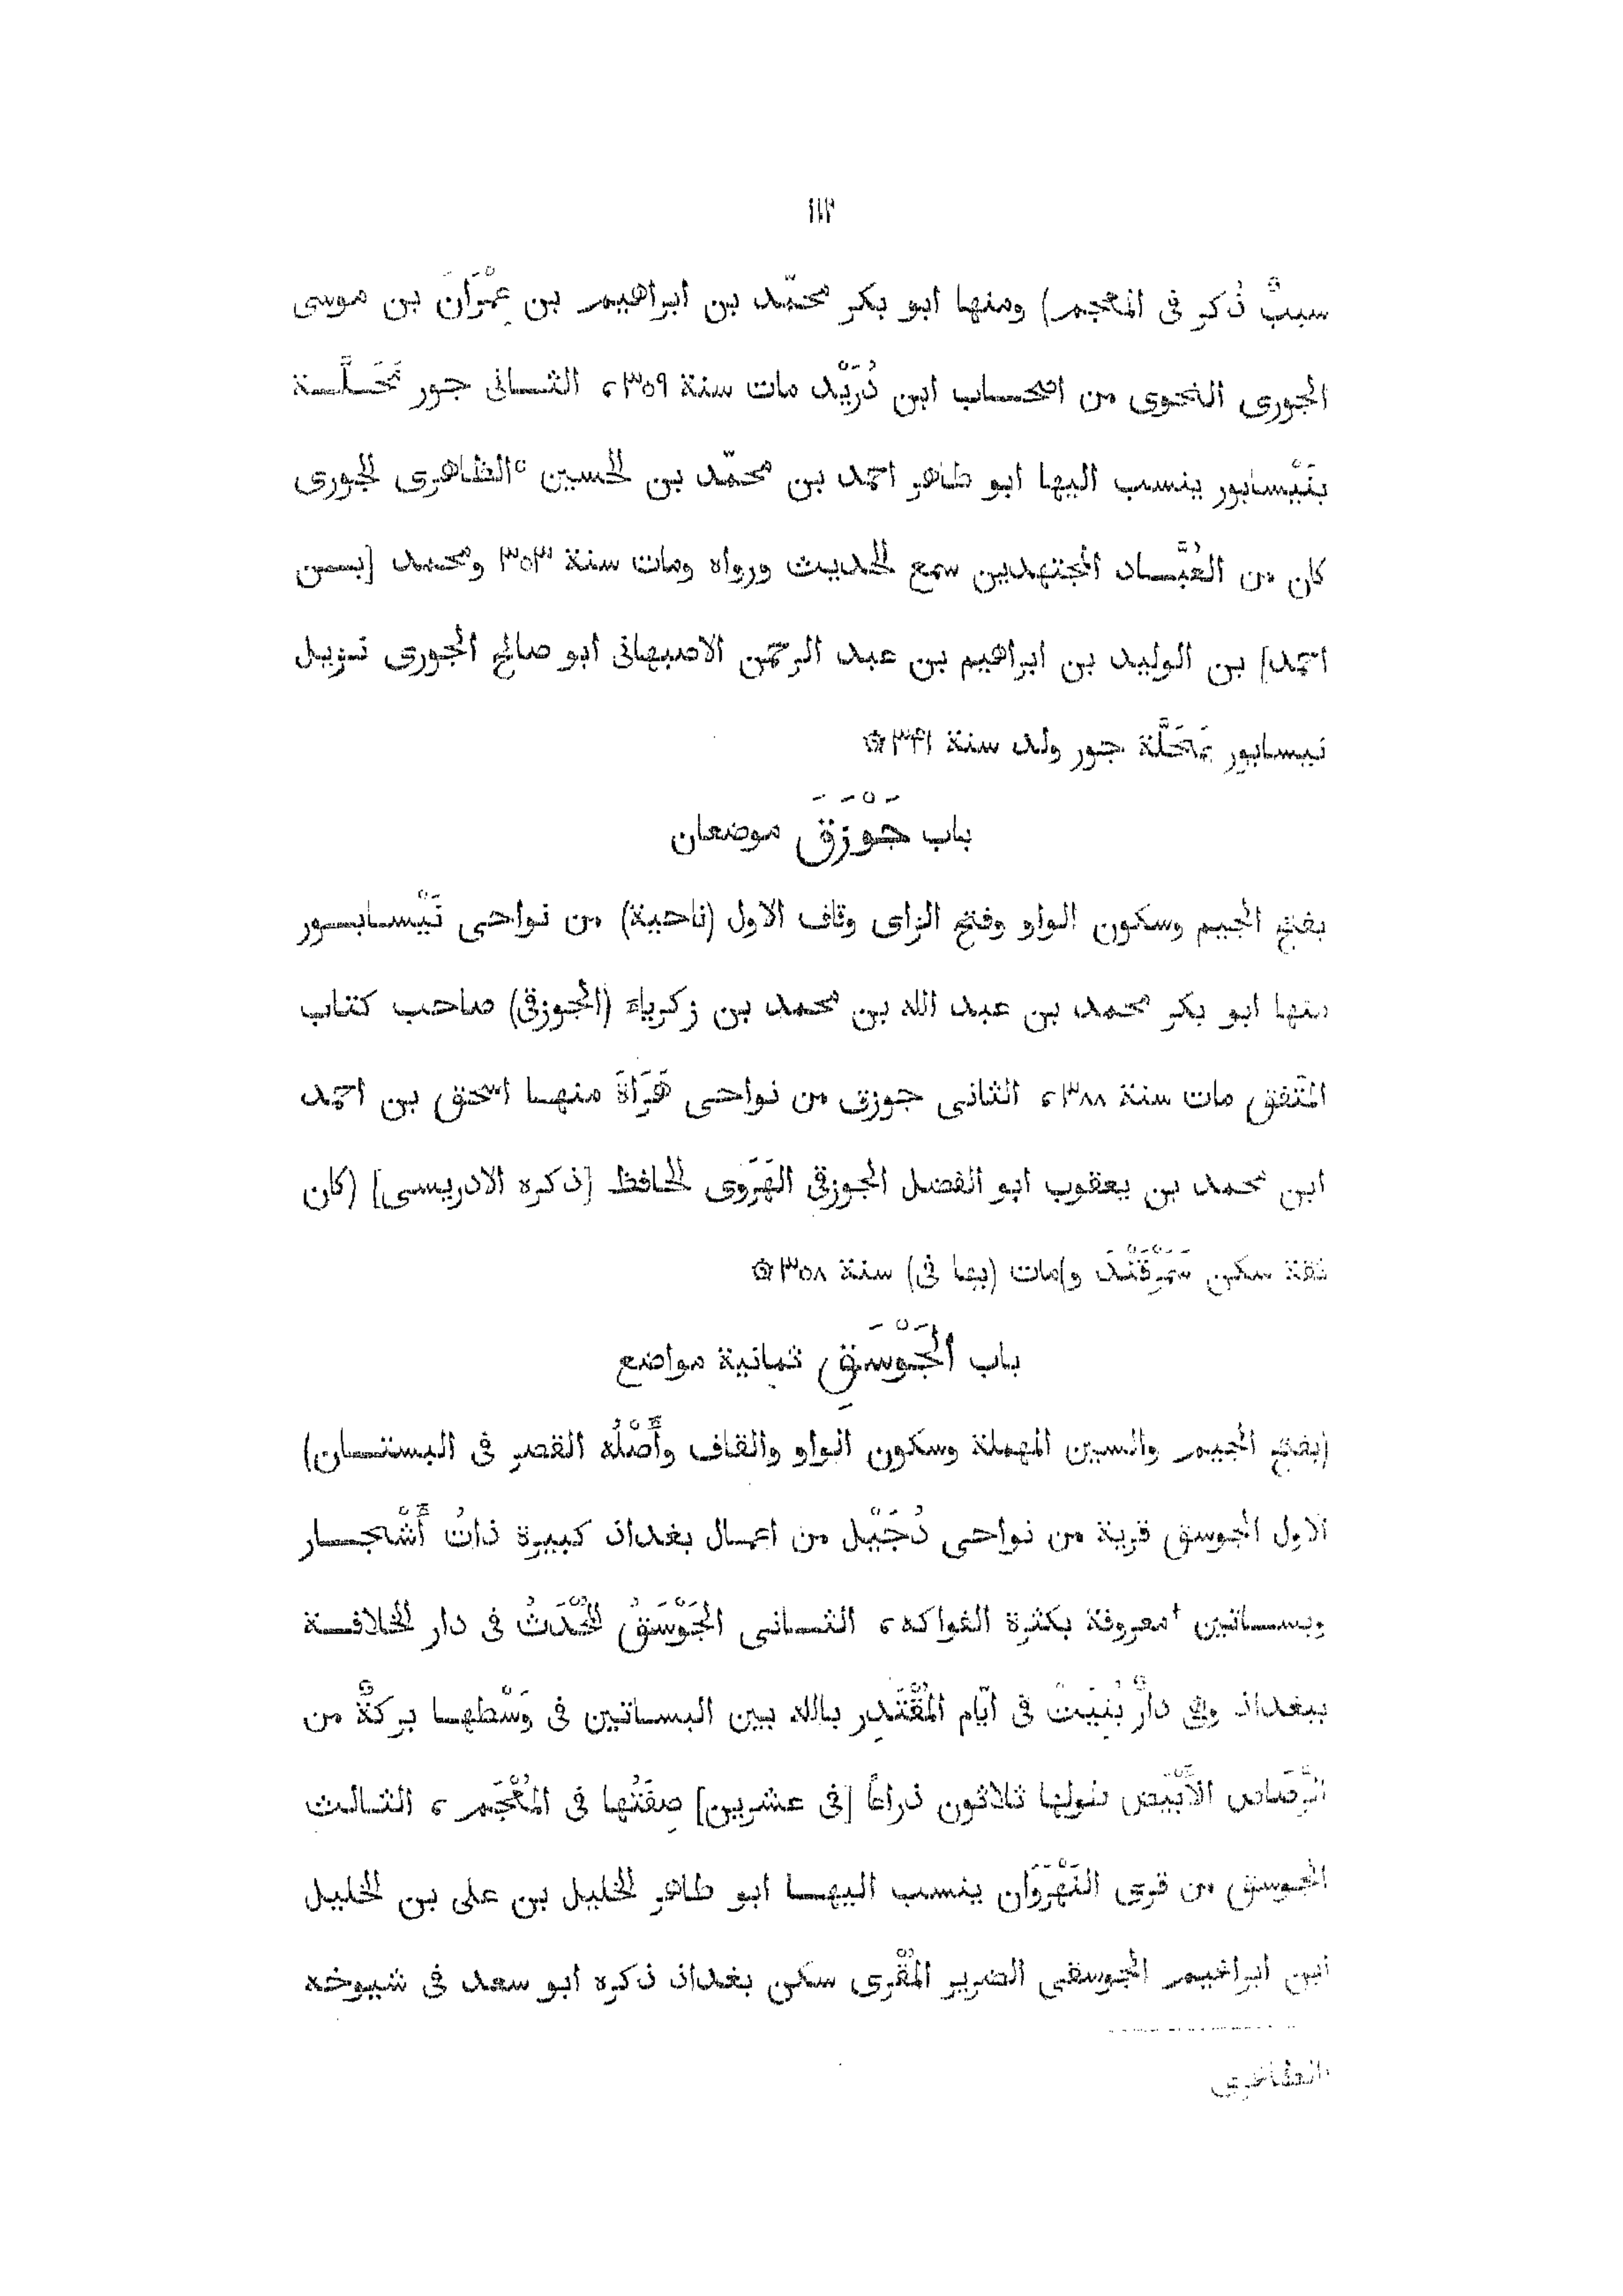 سببٌ ذُكر فى المعجم) ومنها ابو بكر محمّد بن ابراهيم بن عِمْرَانَ بن موسى
الجورى النحوى من اصحاب ابن دُرَيْد مات سنة ٣٥٩، الثانى جور مَحَلَّة
بنَيْسابور ينسب اليها ابو طاهر احمد بن محمّد بن الحسين °الطاهرى الجورى
كان من العُبَّاد المجتهدين سمع الحديث ورواه ومات سنة ٣٥٣ ومحمد [بن
احمد] بن الوليد بن ابراهيم بن عبد الرحمن الاصبهانى ابو صالح الجورى نزيل
نيسابور بمَحَلَّة جور ولد سنة ٣٤١ ۞
باب جَوْزَقَ موضعان
بفتح الجيم وسكون الواو وفتح الزاى وقاف الاول (ناحية) من نواحى نَيْسابور
منها ابو بكر محمد بن عبد الله بن محمد بن زكرياء (الجوزقى) صاحب كتاب
المتّفق مات سنة ٣٨٨، الثانى جوزق من نواحى هَرَاةَ منها اسحق بن احمد
ابن محمد بن يعقوب ابو الفضل الجوزقى الهَرَوى الحافظ [ذكره الادريسى] (كان
ثقة سكن سَمَرْقَنْدَ و)مات (بها فى) سنة ٣٥٨ ۞
باب الجَوْسَقِ ثمانية مواضع
(بفتح الجيم والسين المهملة وسكون الواو والقاف وأَصْلُه القصر فى البستان)
الاول الجوسق قرية من نواحى دُجَيْل من اعمال بغداد كبيرة ذاتُ أَشْجار
وبساتين †معروفة بكثرة الفواكه، الثانى الجَوْسَقُ المُحْدَثُ فى دار الخلافة
ببغداد وهى دارٌ بُنِيَتْ فى ايّام المُقْتَدِر بالله بين البساتين فى وَسْطها بركةٌ من
الرَّصاص الأَبْيَض طولها ثلاثون ذراعًا [فى عشرين] صِفَتُها فى المُعْجَم، الثالث
الجوسق من قرى النَهْرَوَان ينسب اليها ابو طاهر الخليل بن على بن الخليل
ابن ابراهيم الجوسقى الضرير المُقْرِى سكن بغداد ذكره ابو سعد فى شيوخه